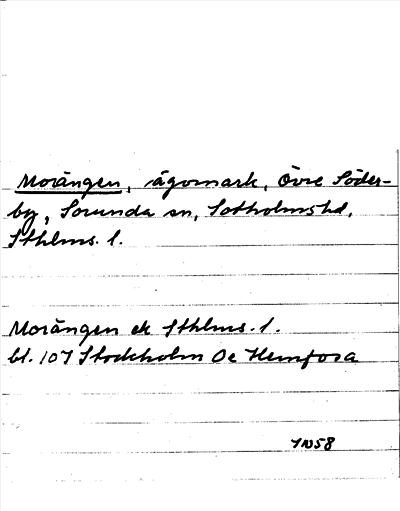 Morängen, ägomark, Övre Söder-
by, Sorunda sn, Sotholms hd,
Sthlms. l.
Morängen ek Sthlms. l.
bl. 107 Stockholm Oe Hemfosa
1958